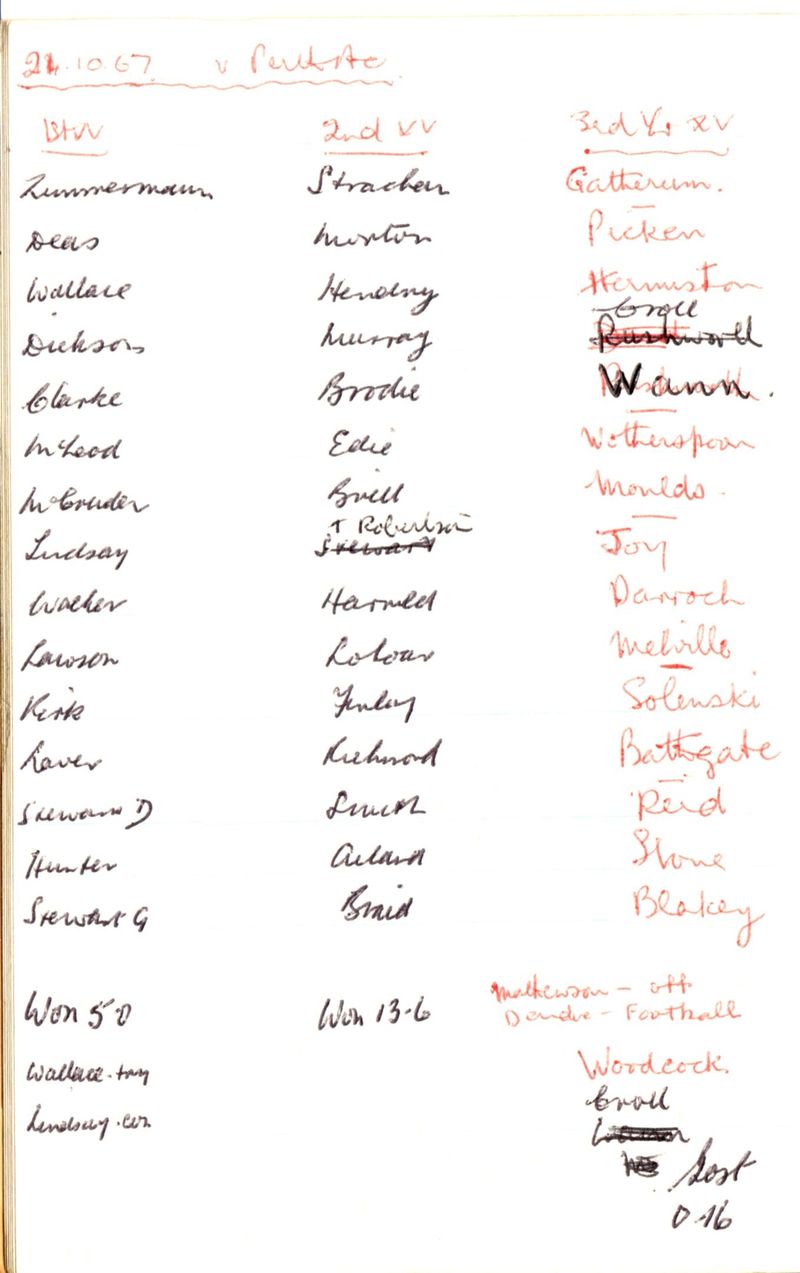 21.10.67 v
1st XV 2nd XV 3rd Yr XV
Zimmermann Strachan Gatherum.
Deas Morton Picken
Wallace Hendry Hermiston
Croll
Dickson Murray Rushworth
Clarke Brodie Wann.
McLeod Edie Wotherspoon
McCruder Brill Moulds.
T Robertson
Lindsay Stewart Joy
Walker Harrild Darroch
Lawson Melville
Kirk Finlay Solenski
Laver Richmond Bathgate
Stewart D Smith Reid
Hunter Stone
Stewart G Braid Blakey
Mathewson - off
Won 5-0 Won 13-6 Dundee - Football
Wallace. try Woodcock.
Lindsay. con Croll
Lost
0-16